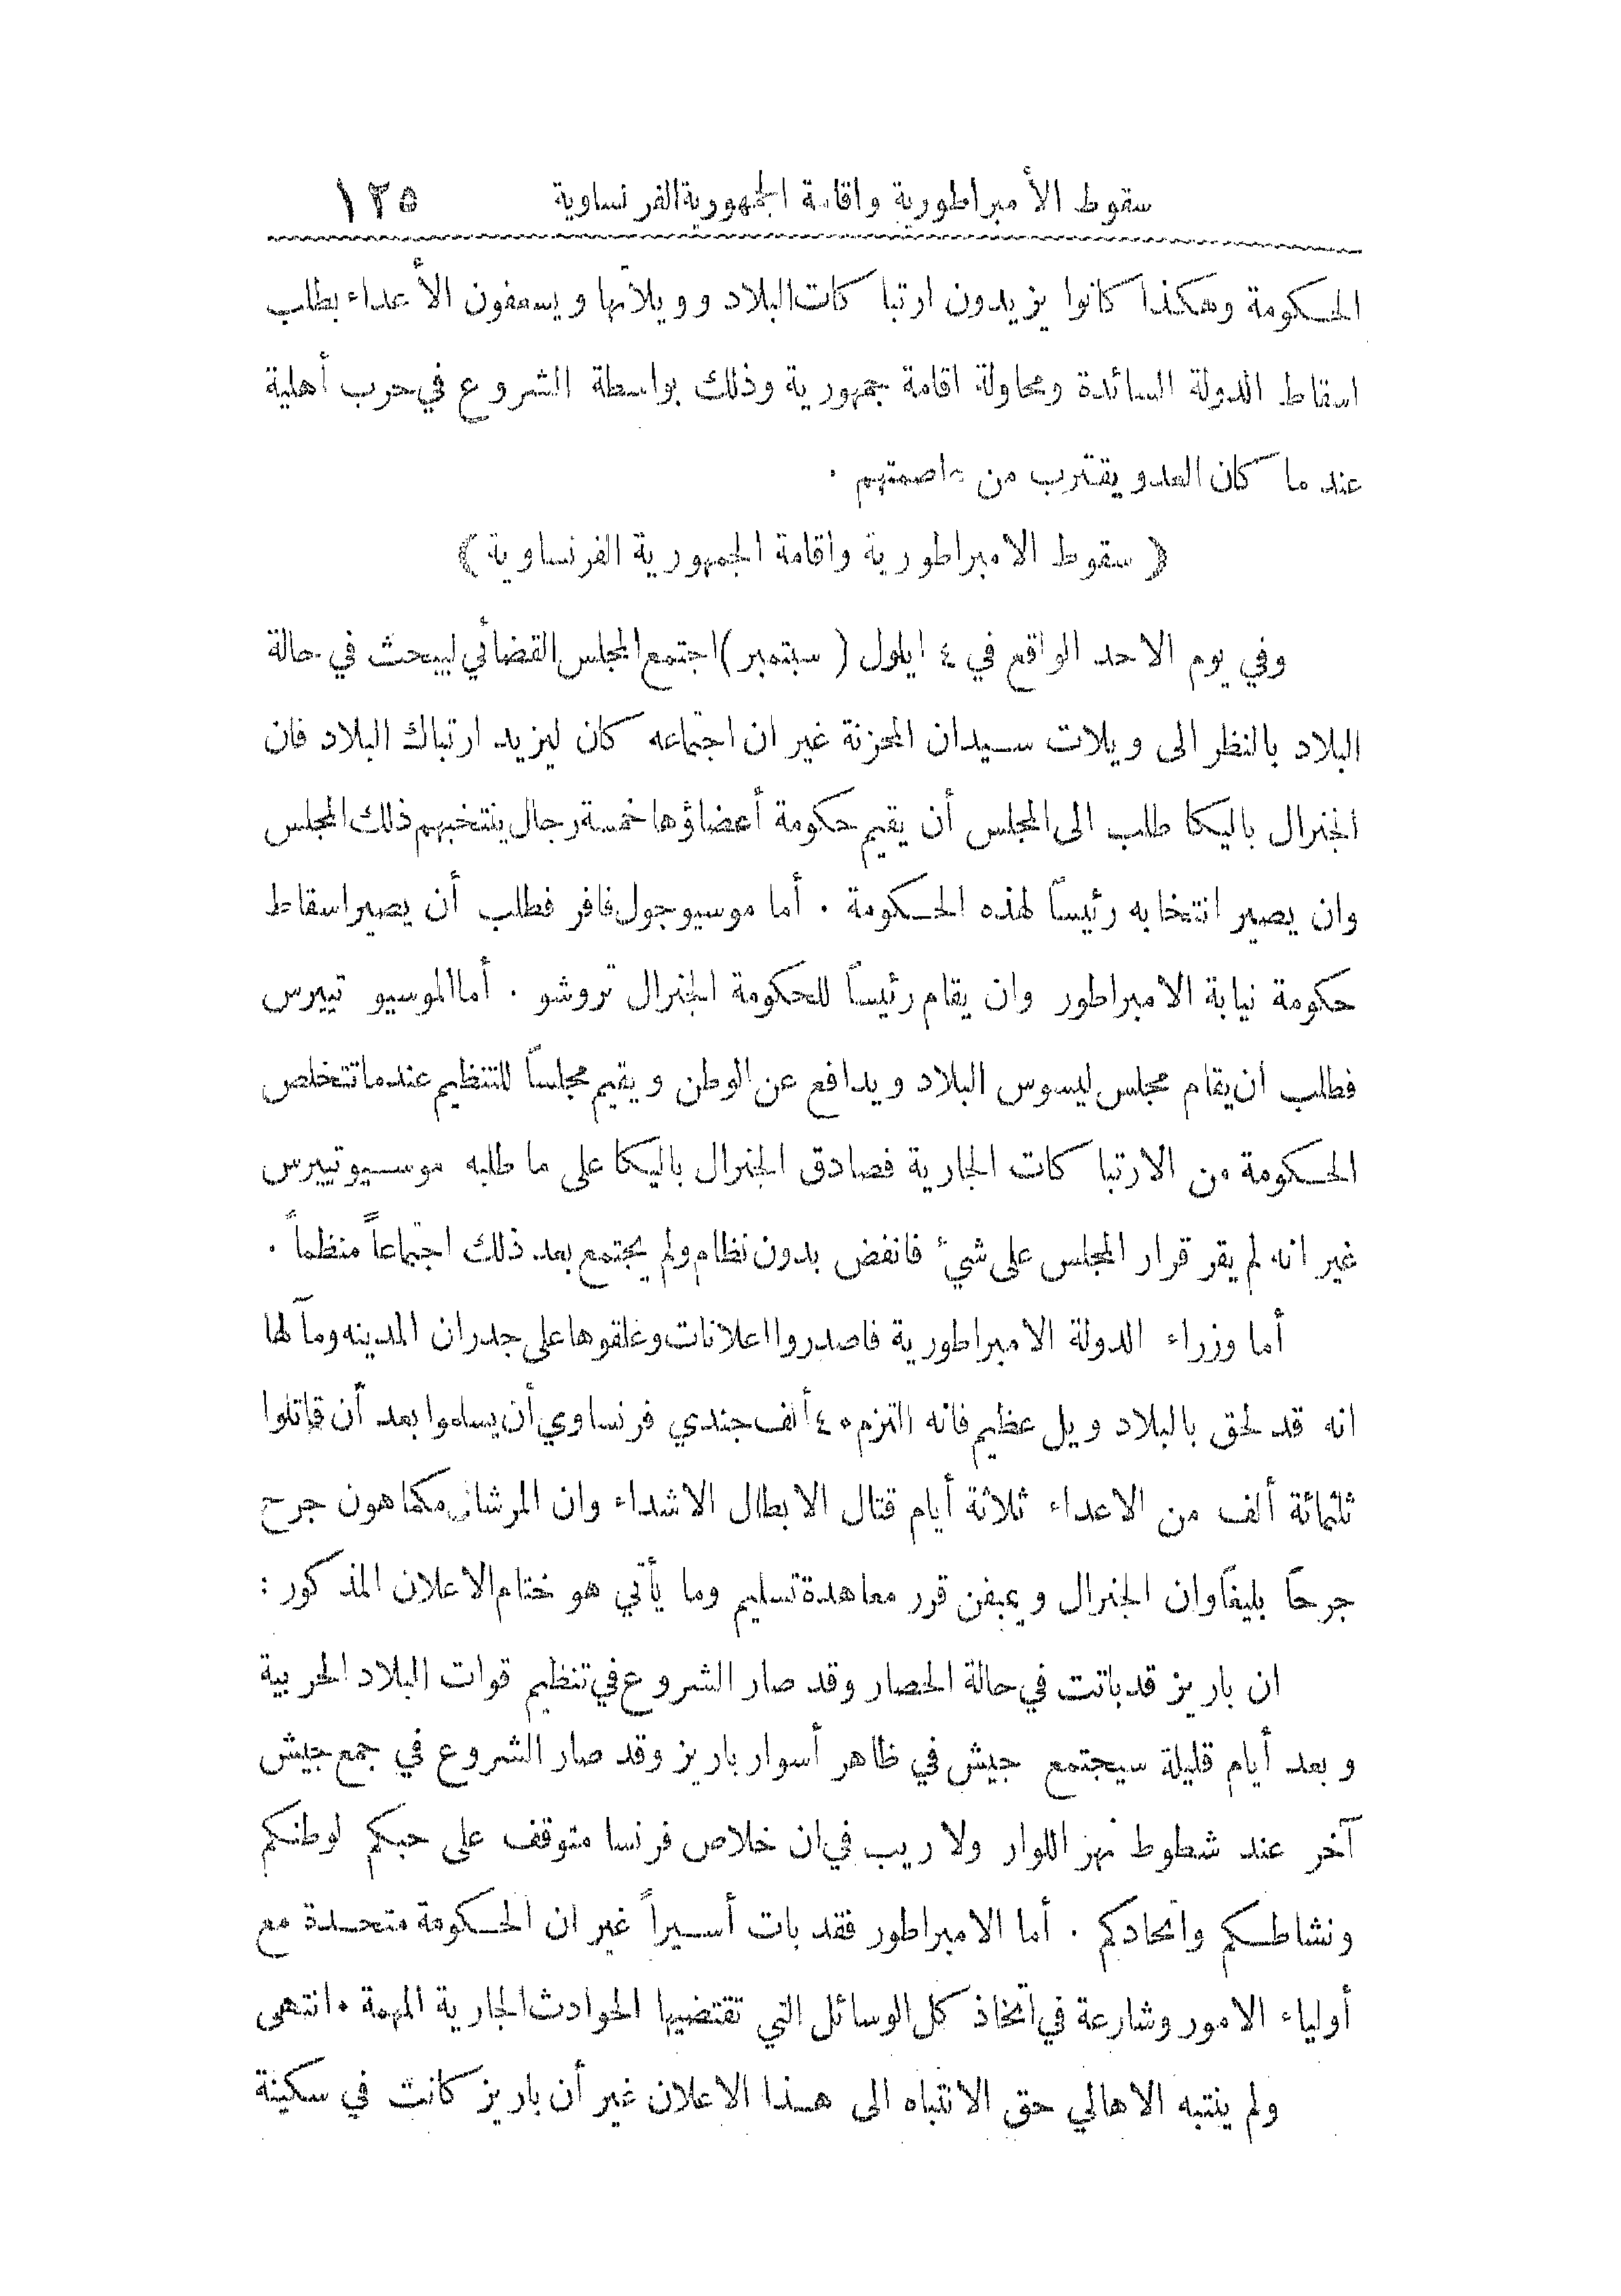 سقوط الأمبراطورية واقامة الجمهورية الفرنساوية ١٢٥
الحكومة وهكذا كانوا يزيدون ارتباكات البلاد وويلاتها ويسعفون الأعداء بطلب
اسقاط الدولة السائدة ومحاولة اقامة جمهورية وذلك بواسطة الشروع في حرب أهلية
عند ما كان العدو يقترب من عاصمتهم .
﴿ سقوط الامبراطورية واقامة الجمهورية الفرنساوية ﴾
وفي يوم الاحد الواقع في ٤ ايلول ( سبتمبر ) اجتمع المجلس القضائي ليبحث في حالة
البلاد بالنظر الى ويلات سيدان المحزنة غير ان اجتماعه كان ليزيد ارتباك البلاد فان
الجنرال باليكا طلب الى المجلس أن يقيم حكومة أعضاؤها خمسة رجال ينتخبهم ذلك المجلس
وان يصير انتخابه رئيساً لهذه الحكومة . أما موسيو جول فافر فطلب أن يصير اسقاط
حكومة نيابة الامبراطور وان يقام رئيساً للحكومة الجنرال تروشو . أما الموسيو تييرس
فطلب أن يقام مجلس ليسوس البلاد ويدافع عن الوطن ويقيم مجلساً للتنظيم عندما تتخلص
الحكومة من الارتباكات الجارية فصادق الجنرال باليكا على ما طلبه موسيو تييرس
غير انه لم يقر قرار المجلس على شيء فانفض بدون نظام ولم يجتمع بعد ذلك اجتماعاً منظماً .
أما وزراء الدولة الامبراطورية فاصدروا اعلانات وعلقوها على جدران المدينه ومآلها
انه قد لحق بالبلاد ويل عظيم فانه التزم ٤٠ ألف جندي فرنساوي أن يسلموا بعد أن قاتلوا
ثلثمائة ألف من الاعداء ثلاثة أيام قتال الابطال الاشداء وان المرشال مكماهون جرح
جرحاً بليغاً وان الجنرال ويمبفن قرر معاهدة تسليم وما يأتي هو ختام الاعلان المذكور :
ان باريز قد باتت في حالة الحصار وقد صار الشروع في تنظيم قوات البلاد الحربية
وبعد أيام قليلة سيجتمع جيش في ظاهر أسوار باريز وقد صار الشروع في جمع جيش
آخر عند شطوط نهر اللوار ولا ريب في ان خلاص فرنسا متوقف على حبكم لوطنكم
ونشاطكم واتحادكم . أما الامبراطور فقد بات أسيراً غير ان الحكومة متحدة مع
أولياء الامور وشارعة في اتخاذ كل الوسائل التي تقتضيها الحوادث الجارية المهمة . انتهى
ولم ينتبه الاهالي حق الانتباه الى هذا الاعلان غير أن باريز كانت في سكينة